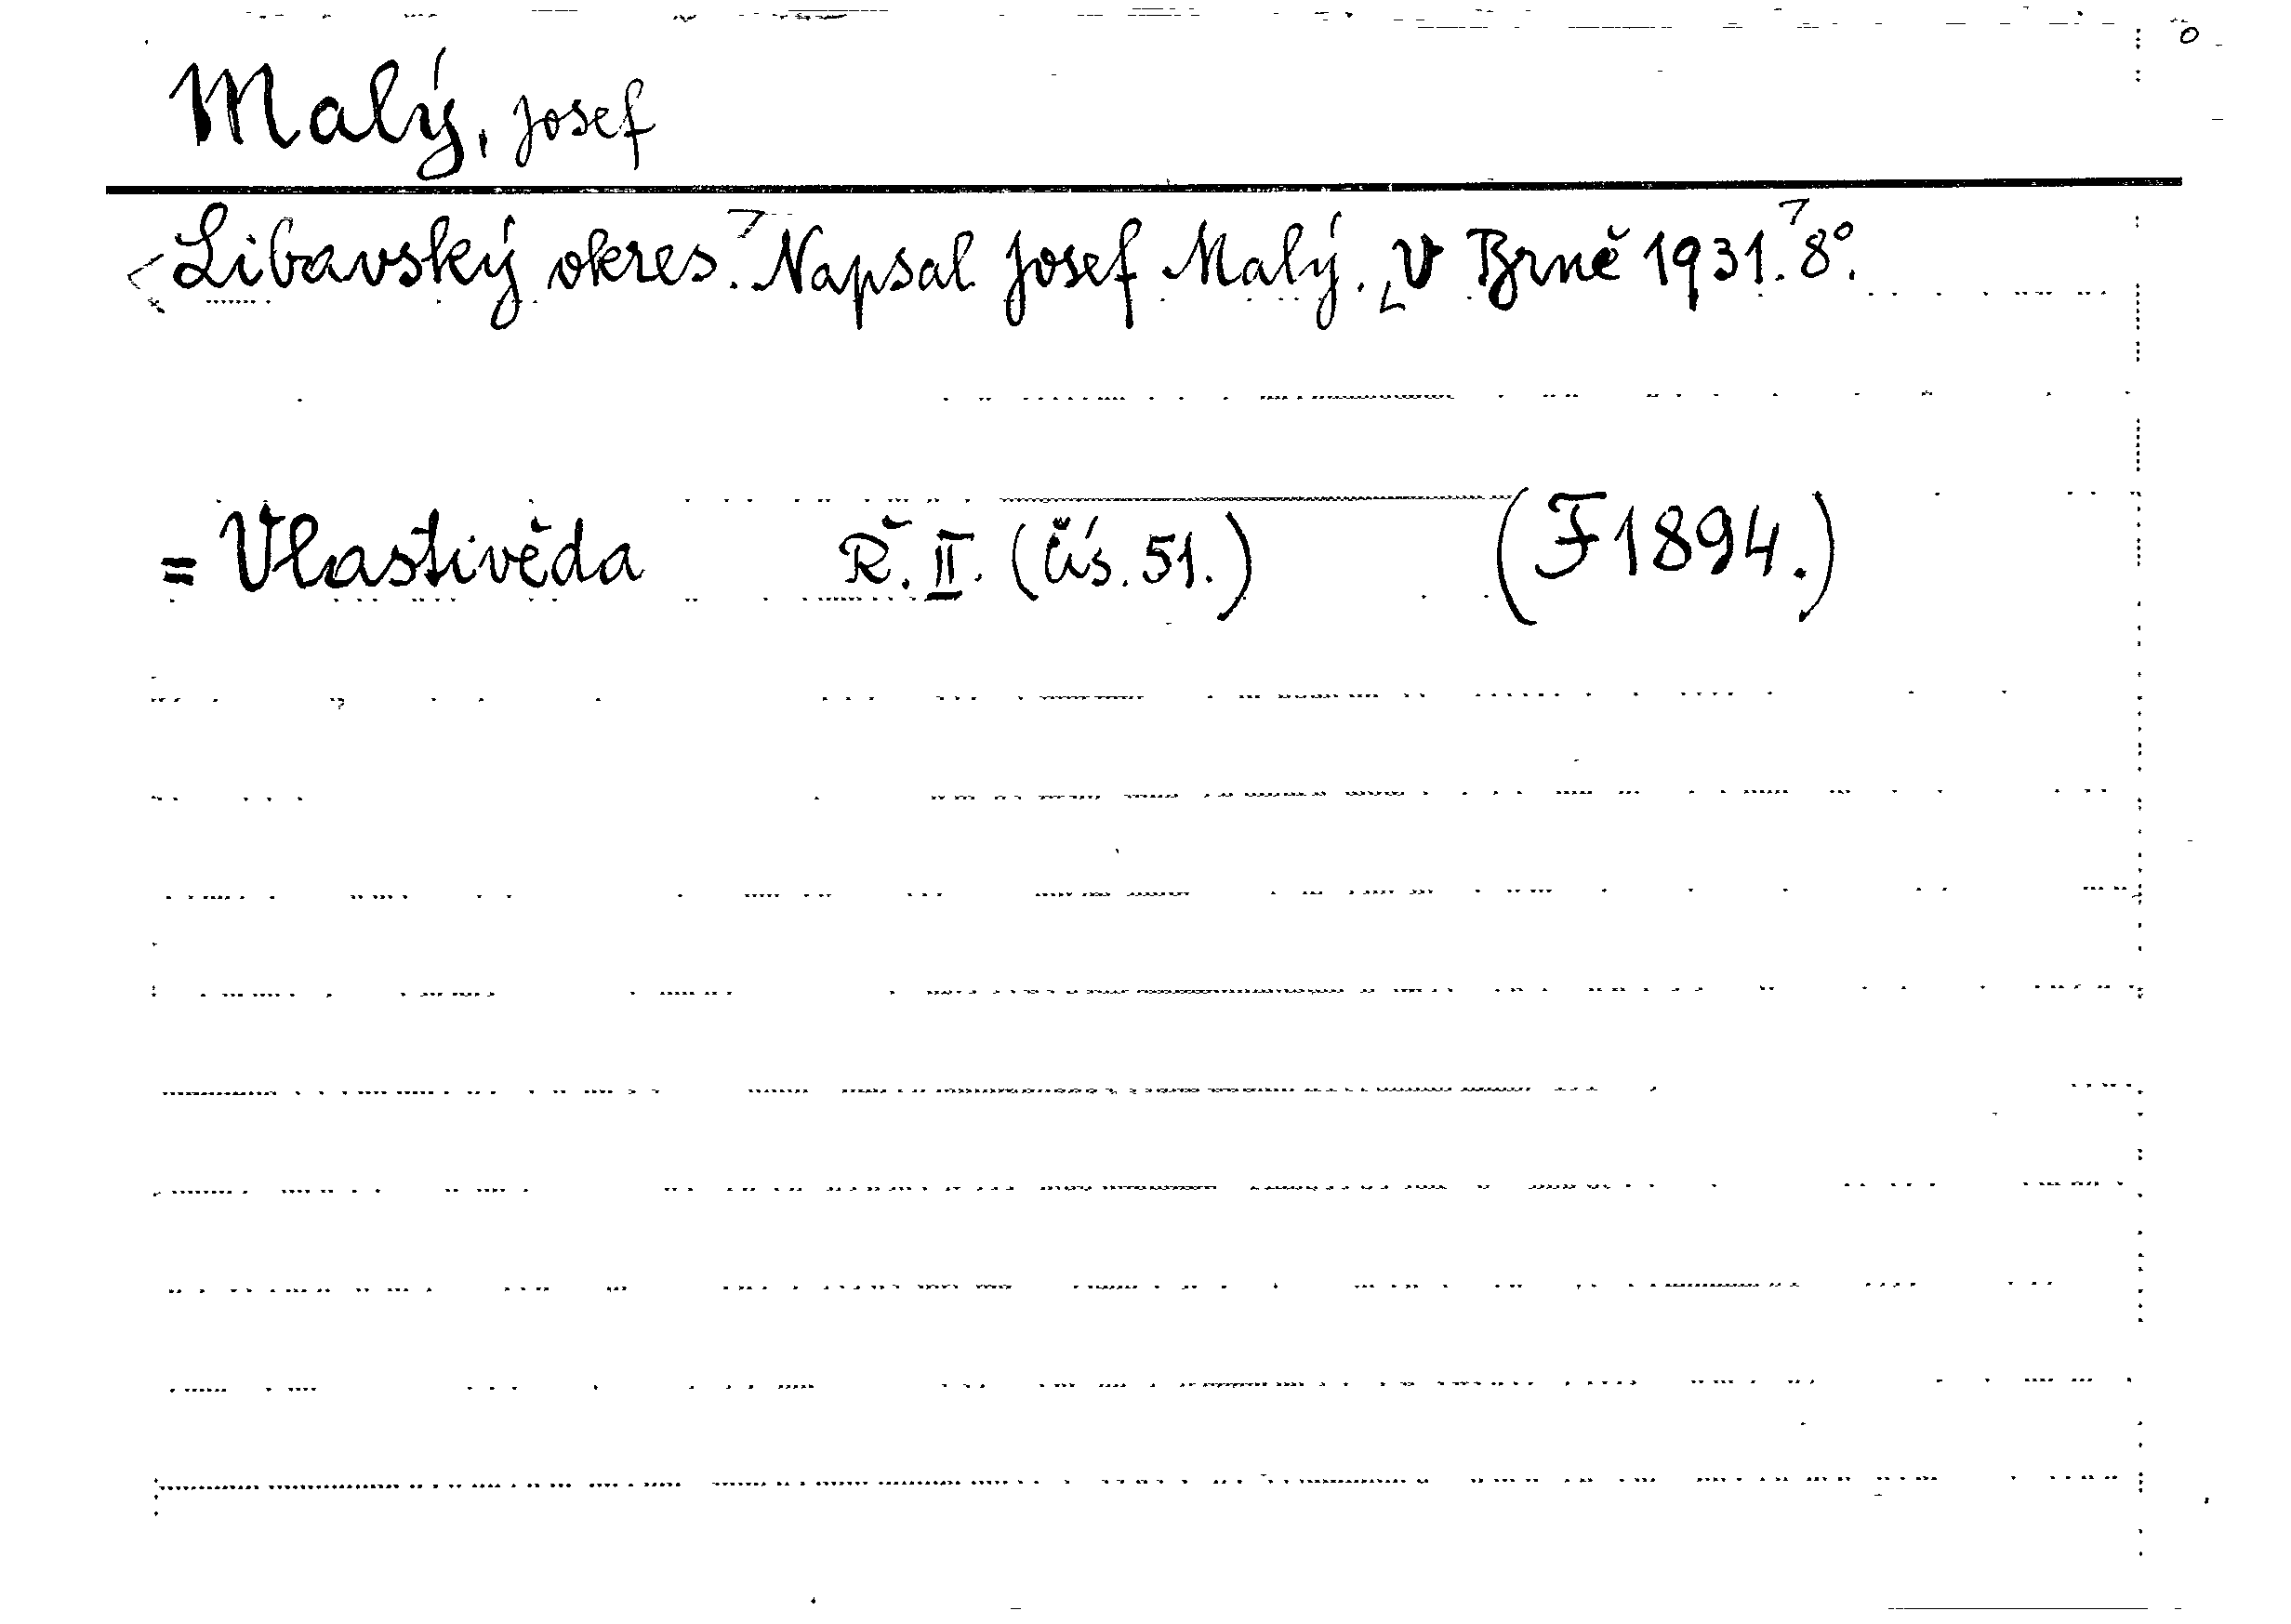 Malý, Josef
Libavský okres. Napsal Josef Malý. V Brně 1931. 8°.
= Vlastivěda Ř. II. (čís. 51.) (F1894.)